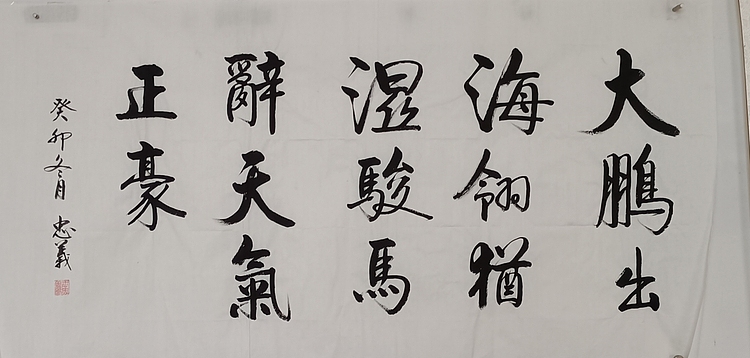 大鵬出
海翎猶
湿駿馬
辭天氣
正豪
癸卯冬月 忠義